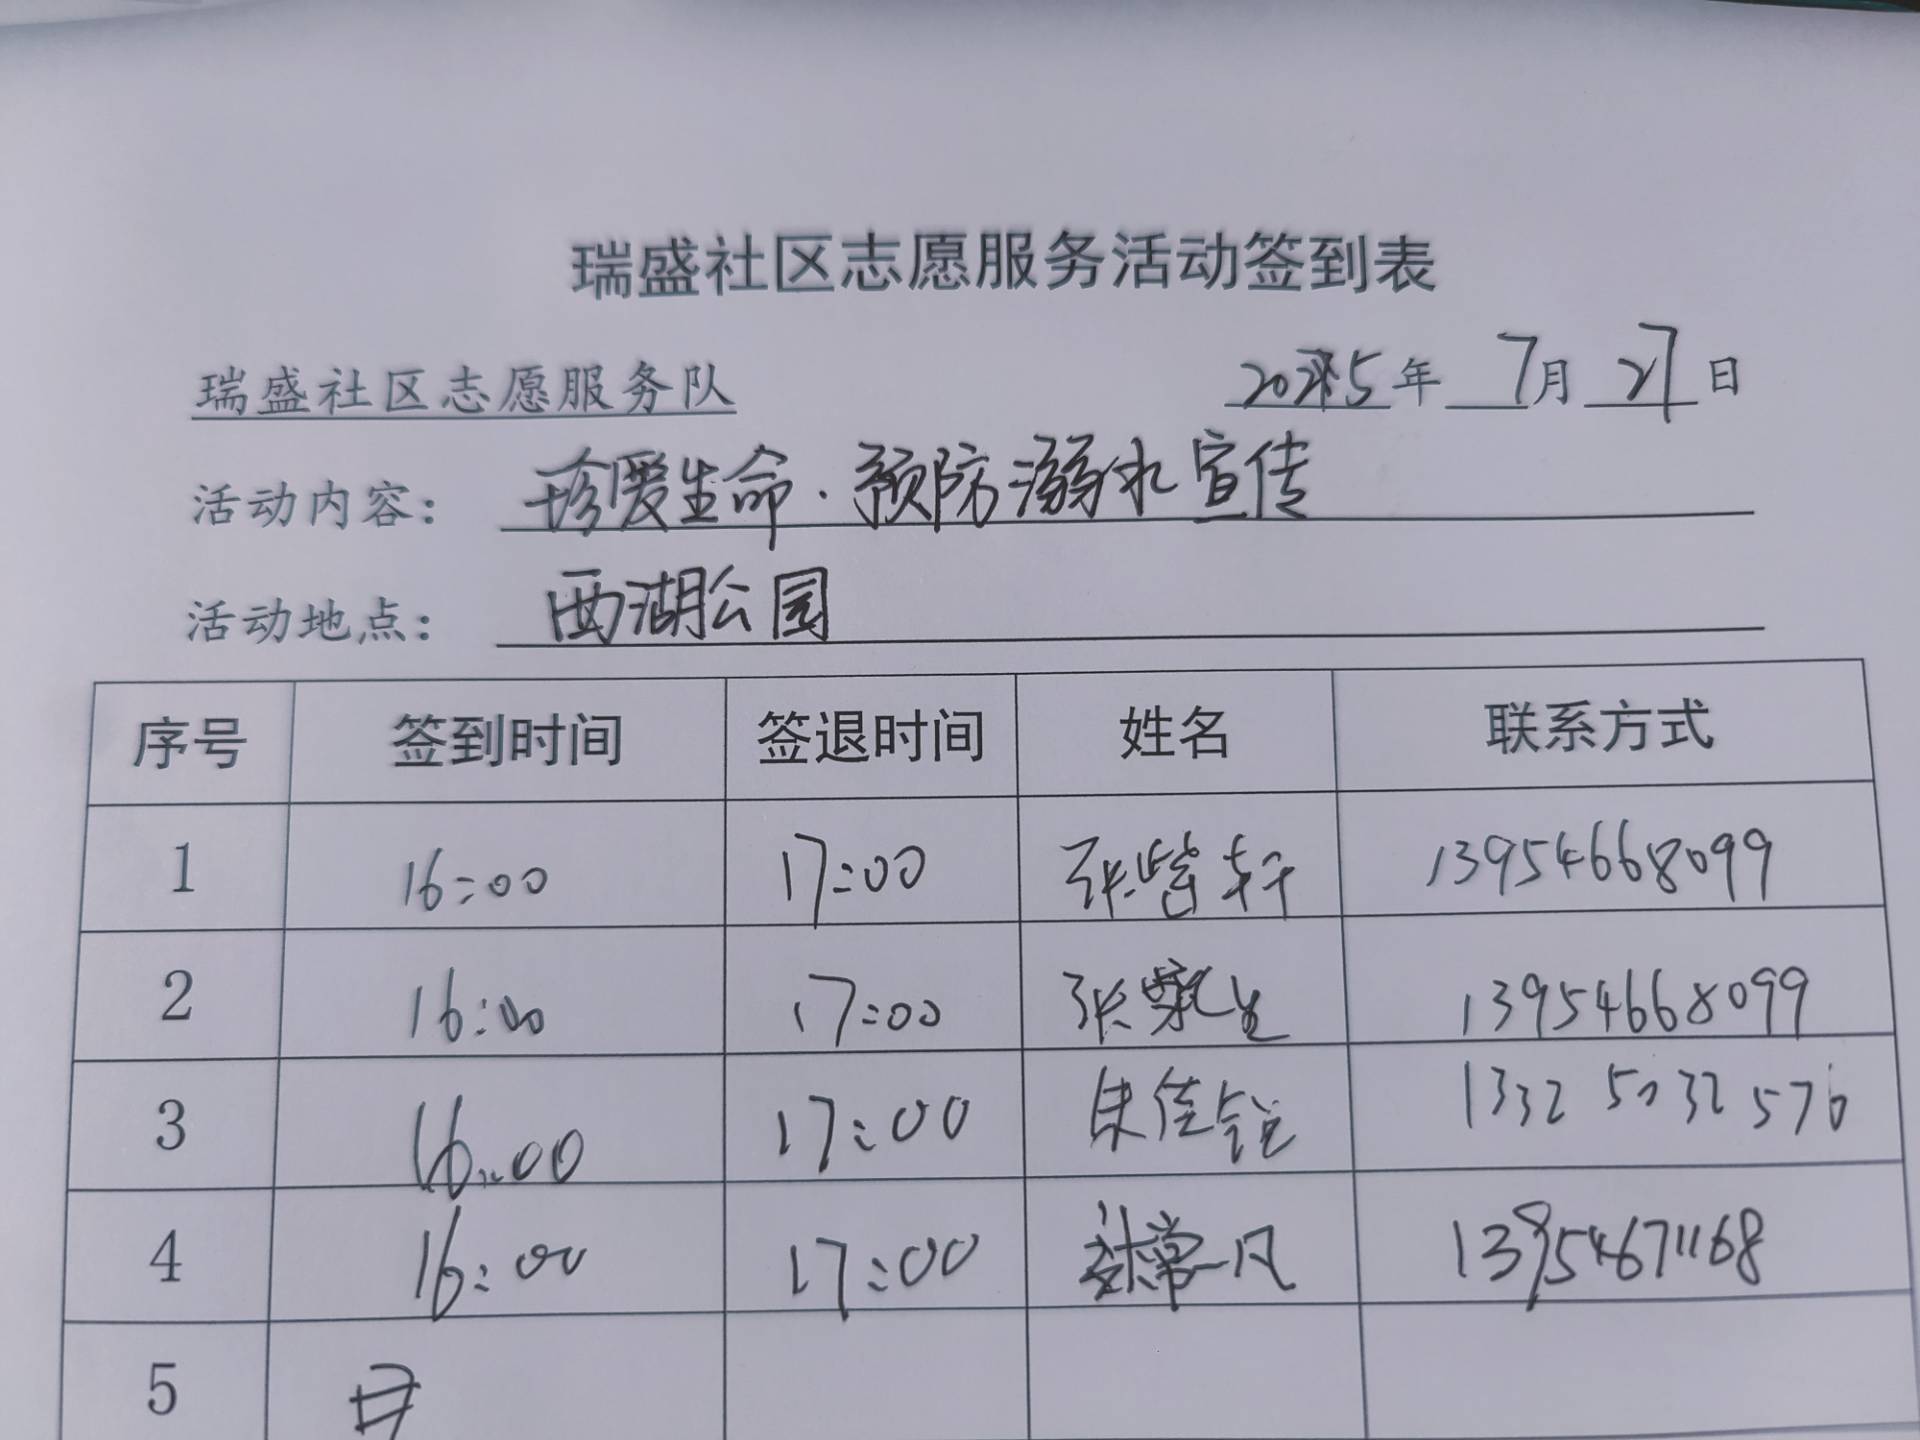 瑞盛社区志愿服务活动签到表
瑞盛社区志愿服务队 2025年 7月 27日
活动内容： 珍爱生命．预防溺水宣传
活动地点： 西湖公园
序号 签到时间 签退时间 姓名 联系方式
1 16:00 17:00 张紫轩 13954668099
2 16:00 17:00 张 13954668099
3 16:00 17:00 朱佳铭
4 16:00 17:00 一凡 13954671168
5